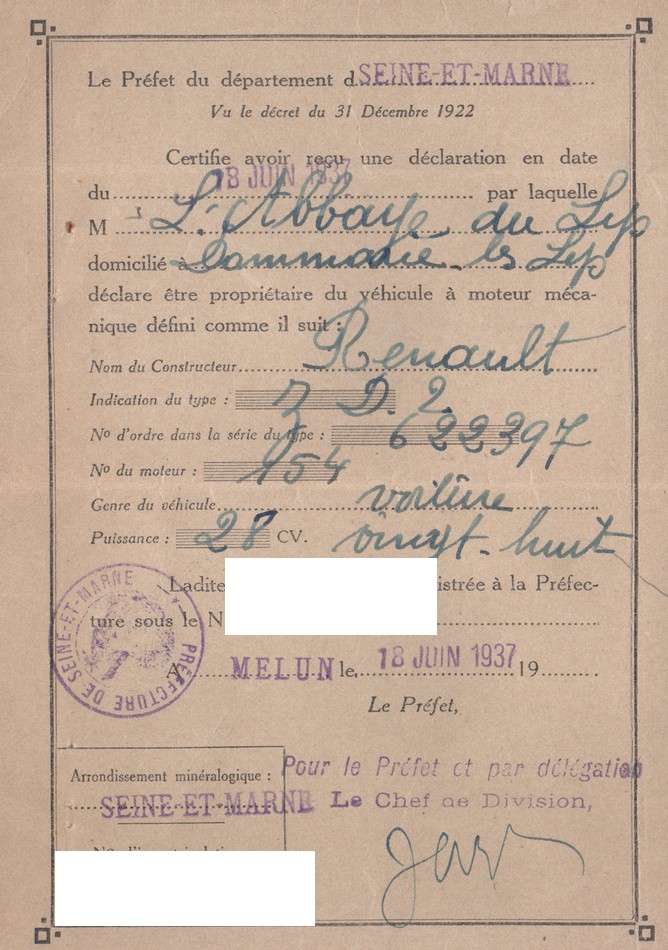 Le Préfet du département d SEINE-ET-MARNE
Vu le décret du 31 Décembre 1922
Certifie avoir reçu une déclaration en date
du 18 JUIN 1937 par laquelle
M L'Abbaye du Lys
domicilié à Dammarie les Lys
déclare être propriétaire du véhicule à moteur méca-
nique défini comme il suit :
Nom du Constructeur Renault
Indication du type : Z D. 2.
No d'ordre dans la série du type : 622397
No du moteur : 154
Genre du véhicule voiture
Puissance : 28 CV. vingt-huit
Ladite istrée à la Préfec-
ture sous le N
PRÉFECTURE DE SEINE-ET-MARNE
A MELUN le 18 JUIN 1937 19
Le Préfet,
Arrondissement minéralogique :
SEINE-ET-MARNE
Pour le Préfet et par délégation
Le Chef de Division,